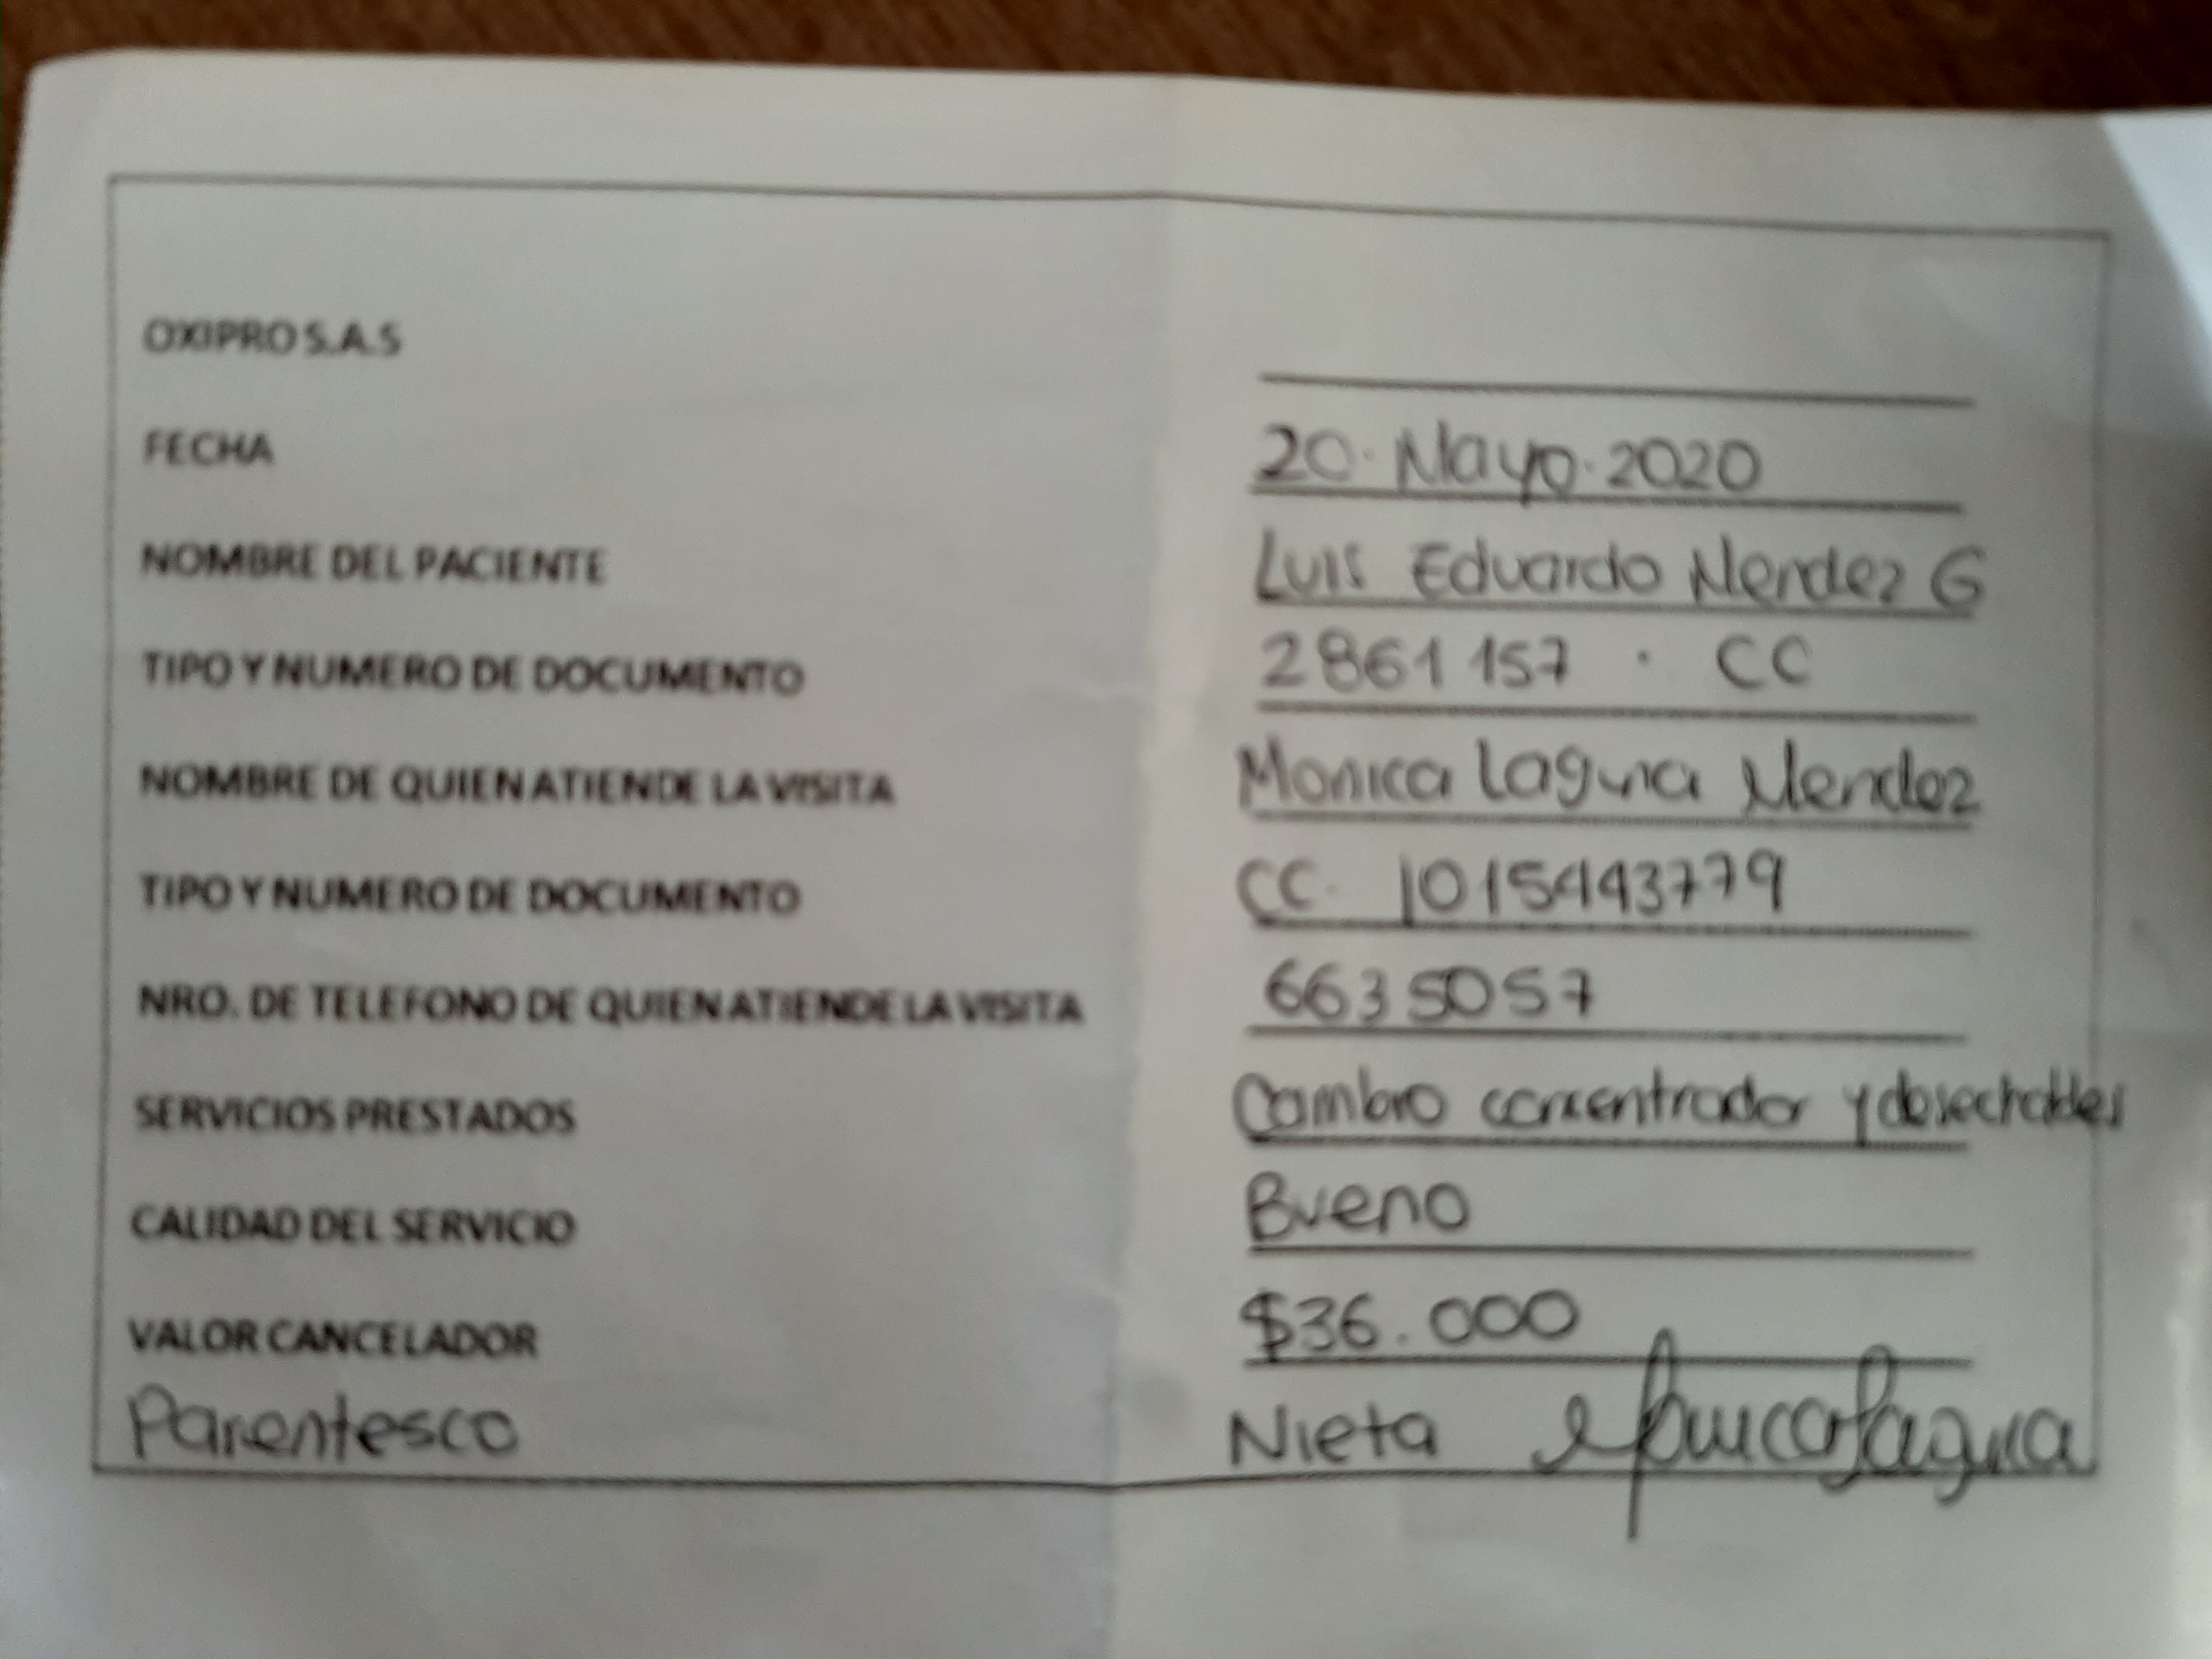 OXIPRO S.A.S
FECHA 20. Mayo. 2020
NOMBRE DEL PACIENTE Luis Eduardo Mendez G
TIPO Y NUMERO DE DOCUMENTO 2861157 · CC
NOMBRE DE QUIEN ATIENDE LA VISITA Monica Laguna Mendez
TIPO Y NUMERO DE DOCUMENTO CC. 1015443779
NRO. DE TELEFONO DE QUIEN ATIENDE LA VISITA 6635057
SERVICIOS PRESTADOS Cambio concentrador y desechables
CALIDAD DEL SERVICIO Bueno
VALOR CANCELADOR $36.000
Parentesco Nieta Monica Laguna